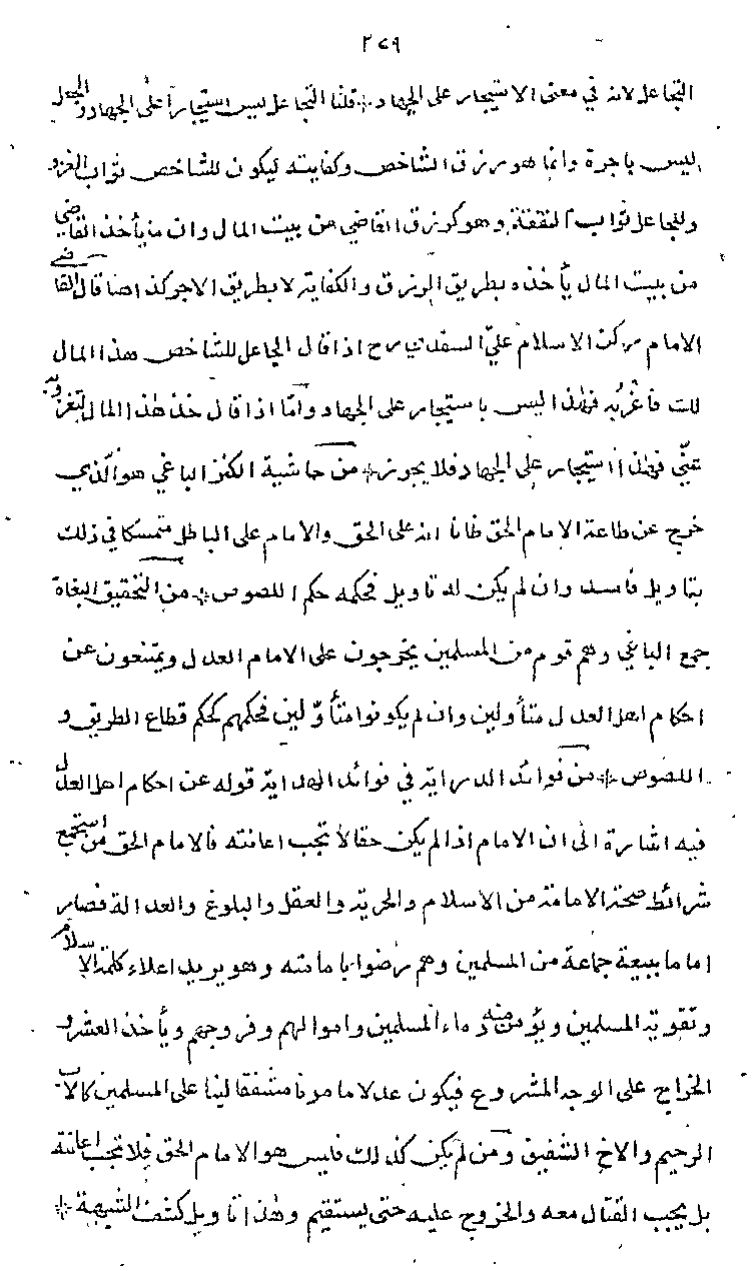 ٢٧٩
التجاعل لانه في معنى الاستيجار على الجهاد * قلنا التجاعل ليس استيجاراً على الجهاد والجعل
ليس باجرة وانما هو رزق الشاخص وكفايته ليكون للشاخص ثواب الغزو
وللجاعل ثواب النفقة وهو كرزق القاضي من بيت المال وان ما يأخذ القاضي
من بيت المال يأخذه بطريق الرزق والكفاية لا بطريق الاجر كذا هنا قال القاضي
الامام ركن الاسلام علي السغدي رح اذا قال الجاعل للشاخص هذا المال
لك فاغز به فهذا ليس باستيجار على الجهاد واما اذا قال خذ هذا المال لتغزو به
عنّي فهذا استيجار على الجهاد فلا يجوز * من حاشية الكنز الباغي هو الّذي
خرج عن طاعة الامام الحق ظانا انه على الحق والامام على الباطل متمسكا في ذلك
بتاويل فاسد وان لم يكن له تاويل فحكمه حكم اللصوص * من التحقيق البغاة
جمع الباغي وهم قوم من المسلمين يخرجون على الامام العدل ويمتنعون عن
احكام اهل العدل متأولين وان لم يكونوا متأوّلين فحكمهم كحكم قطاع الطريق و
اللصوص * من فوائد الدراية في فوائد الهداية قوله عن احكام اهل العدل
فيه اشارة الى ان الامام اذا لم يكن حقا لا تجب اعانته فالامام الحق من استجمع
شرائط صحة الامامة من الاسلام والحرية والعقل والبلوغ والعدالة فصار
اماما ببيعة جماعة من المسلمين وهم رضوا بامامته وهو يريد اعلاء كلمة الاسلام
وتقوية المسلمين ويؤمن منه دماء المسلمين واموالهم وفروجهم ويأخذ العشر و
الخراج على الوجه المشروع فيكون عدلا مامونا مشفقا لينا على المسلمين كالاب
الرحيم والاخ الشفيق ومن لم يكن كذلك فليس هو الامام الحق فلا تجب اعانته
بل يجب القتال معه والخروج عليه حتى يستقيم وهذا تاويل كشف الشبهة *